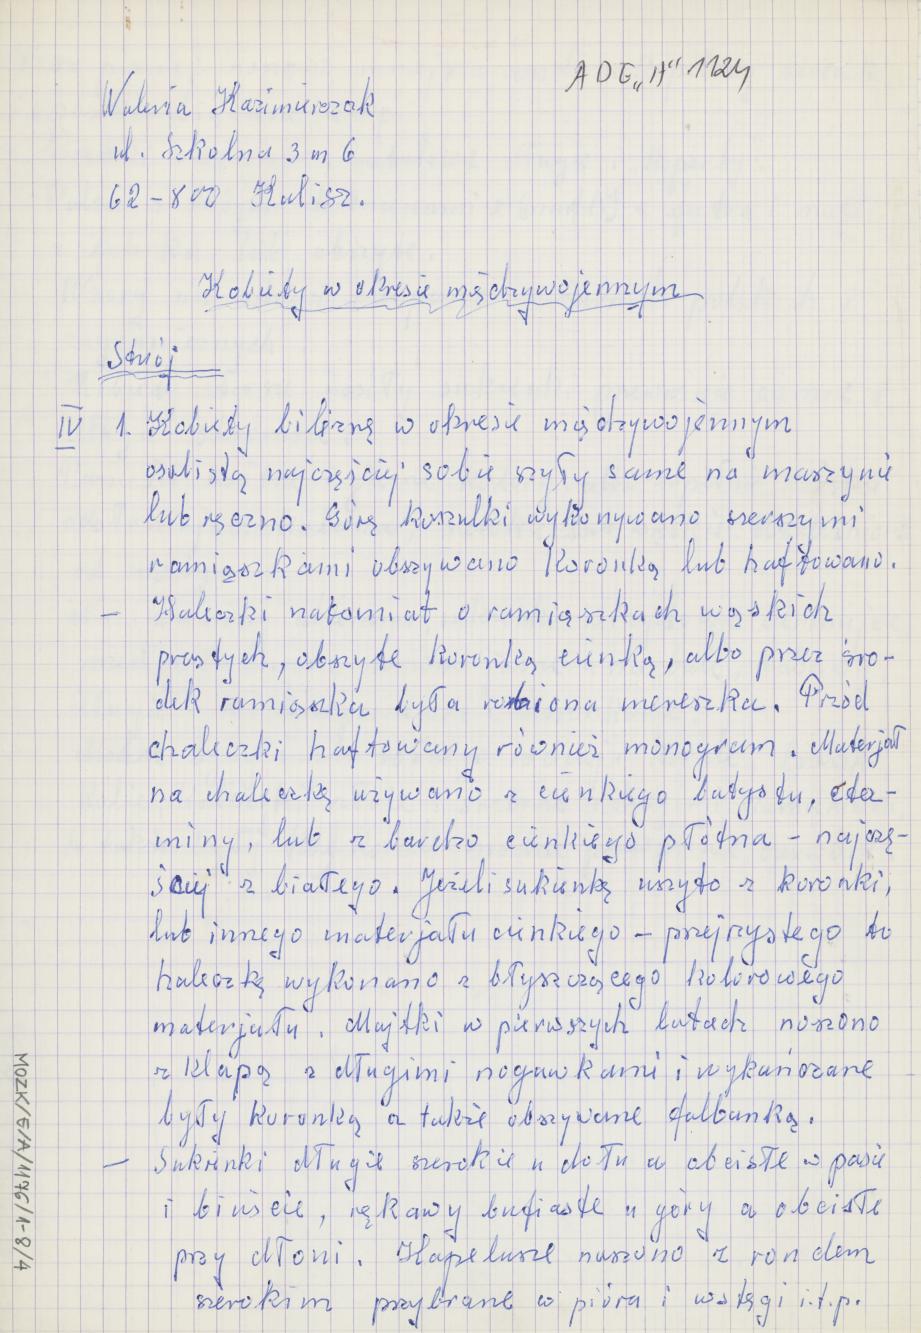 ADE „A" 1124
Waleria Kazimierczak
ul. Szkolna 3 m 6
62-800 Kalisz.
Kobiety w okresie międzywojennym
Strój
IV 1. Kobiety bieliznę w okresie międzywojennym
osobistą najczęściej sobie szyły same na maszynie
lub ręczno. Górę koszulki wykonywano szerszymi
ramiąszkami obszywano koronką lub haftowano.
– Haleczki natomiat o ramiąszkach wąskich
prostych, obszyte koronką cienką, albo przez śro-
dek ramiąszka była robiona mereszka. Przód
chaleczki haftowany również monogram. Materjał
na chaleczkę używano z cienkiego batystu, eta-
miny, lub z bardzo cienkiego płótna – najczę-
ściej z białego. Jeżeli sukienkę uszyto z koronki,
lub innego materjału cienkiego – przejrzystego to
haleczkę wykonano z błyszczącego kolorowego
materjału. Majtki w pierwszych latach noszono
z klapą z długimi nogawkami i wykańczane
były koronką a także obszywane falbanką.
– Sukienki długie szerokie u dołu a obcisłe w pasie
i biuście, rękawy bufiaste u góry a obcisłe
przy dłoni. Kapelusze noszono z rondem
szerokim przybrane w pióra i wstęgi i.t.p.
MOZK/E/A/1176/1-8/4